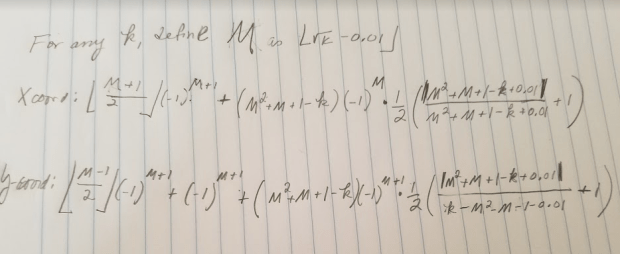 For any k, define M as ⌊√k - 0.01⌋
X coord: ⌊(M+1)/2⌋(-1)^(M+1) + (M²+M+1-k)(-1)^M · 1/2 (|M²+M+1-k+0.01|/(M²+M+1-k+0.01) + 1)
y-coord: ⌊(M-1)/2⌋(-1)^(M+1) + (-1)^(M+1) + (M²+M+1-k)(-1)^(M+1) · 1/2 (|M²+M+1-k+0.01|/(k-M²-M-1-0.01) + 1)